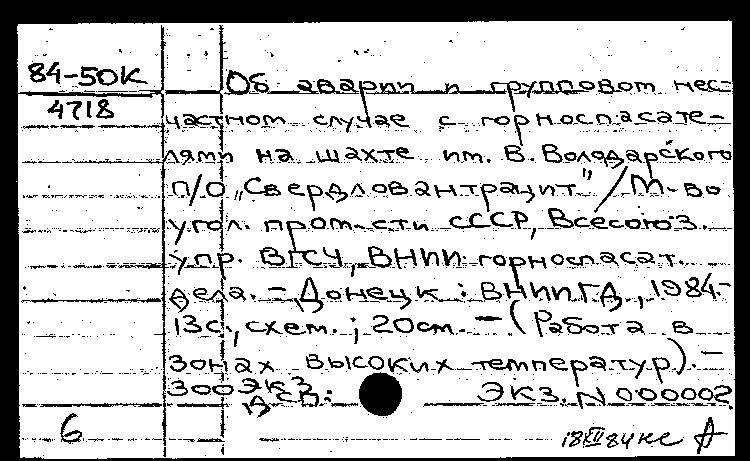 84-50К
4718
Об аварии и групповом нес-
частном случае с горноспасате-
лями на шахте им. В. Володарского
П/О „Свердловантрацит" / М-во
угол. пром-сти СССР, Всесоюз.
упр. ВГСЧ, ВНИИ горноспасат.
дела. – Донецк : ВНИИГД, 1984-
13с., схем. ; 20см. – (Работа в
зонах высоких температур). –
300экз.
ДСП.
Экз. N 000002
6
18 XII 84